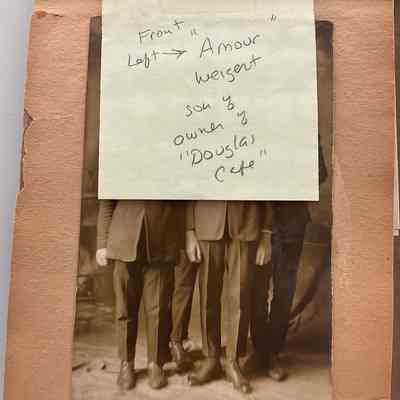 Front
Left → "Amour"
Weigert
son of
owner of
"Douglas
Cafe"